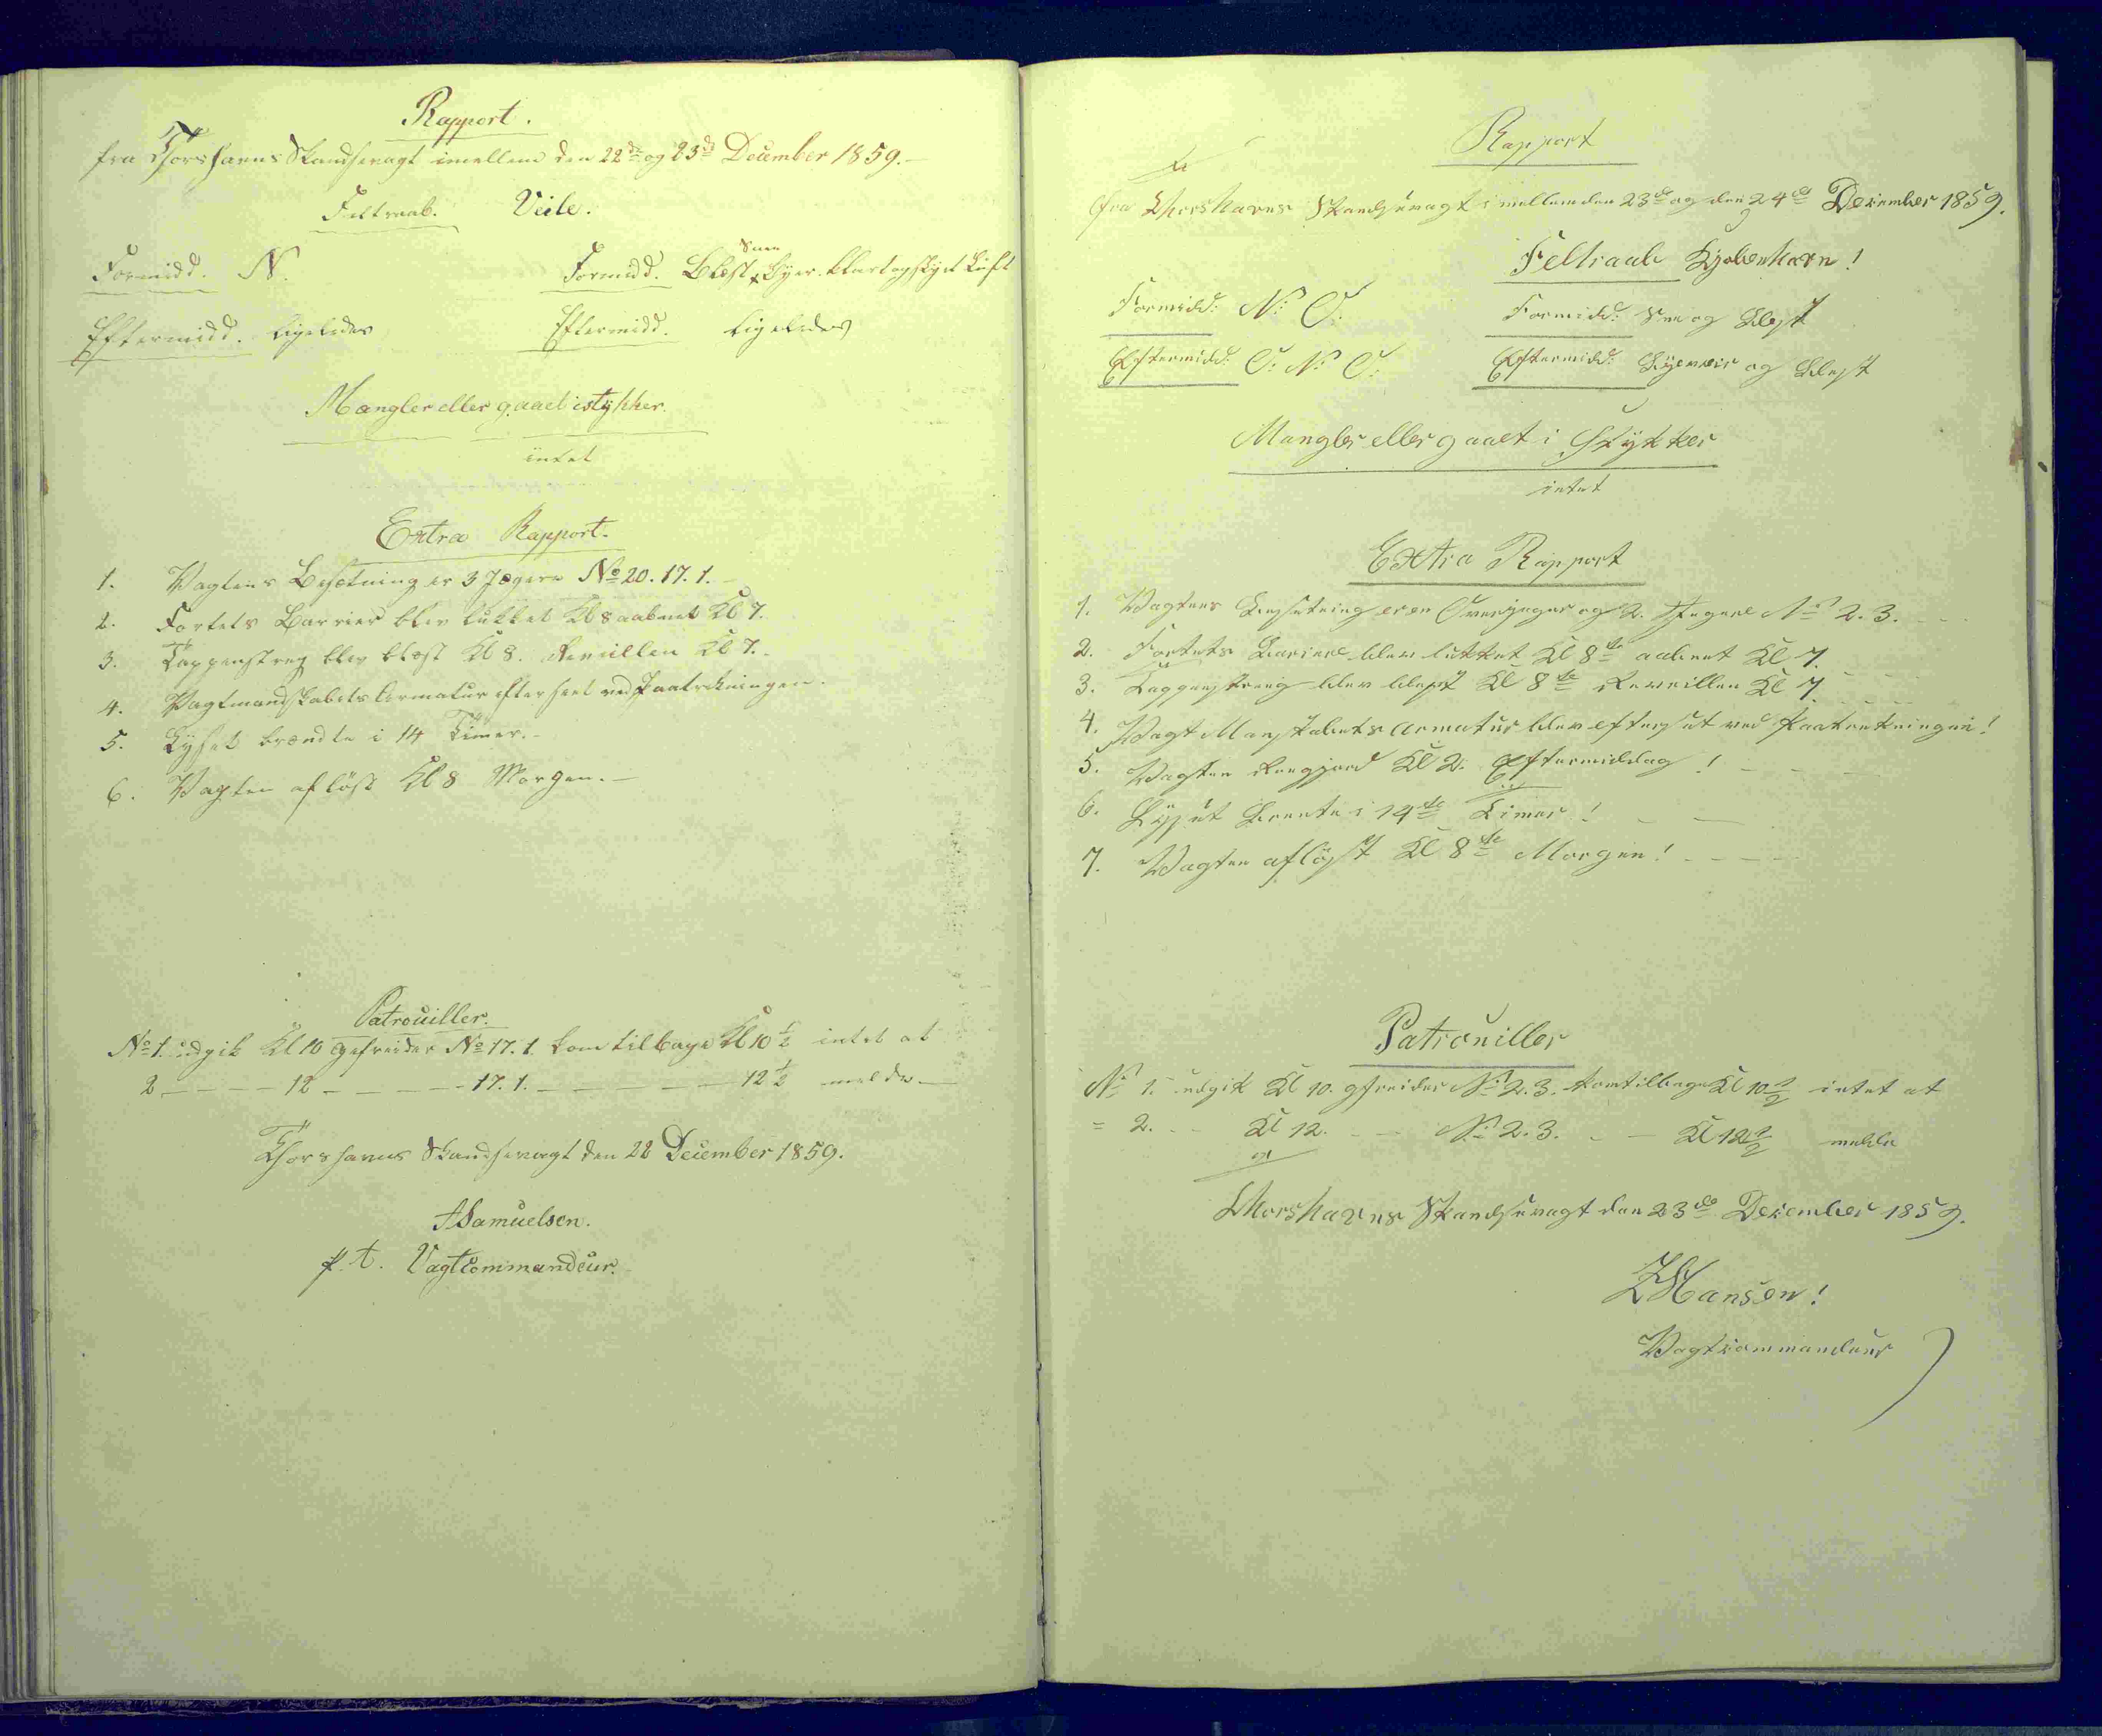 Rapport.
fra Thorshavns Skandsevagt imellem den 22de og 23de December 1859.
Feltraab. Veile.
Formidd. N. Formidd. Blæst Snee Byer. klart og skyet Luft
Eftermidd. ligeledes Eftermidd. ligeledes
Mangler eller gaaet istykker.
intet
Extra Rapport.
1. Vagtens Besætning er 3 Jægere No 20. 17. 1.
2. Fortets Barrier blev lukket Kl 8 aabnet Kl 7.
3. Tappenstreg blev blæst Kl 8. Reveillen Kl 7.
4. Vagtmandskabets Armatur efterseet ved Paatrækningen.
5. Lyset brændte i 14 Timer.
6. Vagten afløst Kl 8 Morgen.
Patrouiller.
No 1. udgik Kl 10 Gefreider No 17. 1. kom tilbage Kl 10 1/2 intet at
2 — 12 — 17. 1. — 12 1/2 melde
Thorshavns Skandsevagt den 22 December 1859.
ASamuelsen.
p. t. Vagtcommandeur.
Rapport
fra Thorshavns Skandsevagt imellem den 23de og den 24de December 1859.
Feltraab Kjøbenhavn!
Formidd: N: O: Formidd: Sne og Blest
Eftermidd: O: N: O: Eftermidd: Byeveir og Blest
Mangler eller gaaet i Stykker
intet
Extra Rapport
1. Vagtens Besetning er en Overjæger og 2. Jegere No 2. 3.
2. Fortets Bariere blev lukket Kl 8te aabent Kl 7.
3. Tappenstreig blev blest Kl 8te Reveillen Kl 7
4. Vagt Manskabets Armatur blev efterset ved Paatrekningen!
5. Vagten Rengjord Kl 2. Eftermiddag!
6. Lyset Brente i 14te Timer!
7. Vagten afløst Kl 8te Morgen!
Patrouiller
No 1. udgik Kl 10. gfreider No 2. 3. kom tilbage Kl 10 1/2 intet at
= 2. Kl 12. No 2. 3. Kl 12 1/2 melde
Thorshavns Skandsevagt den 23de December 1859.
Hansen!
Vagtkommandeur